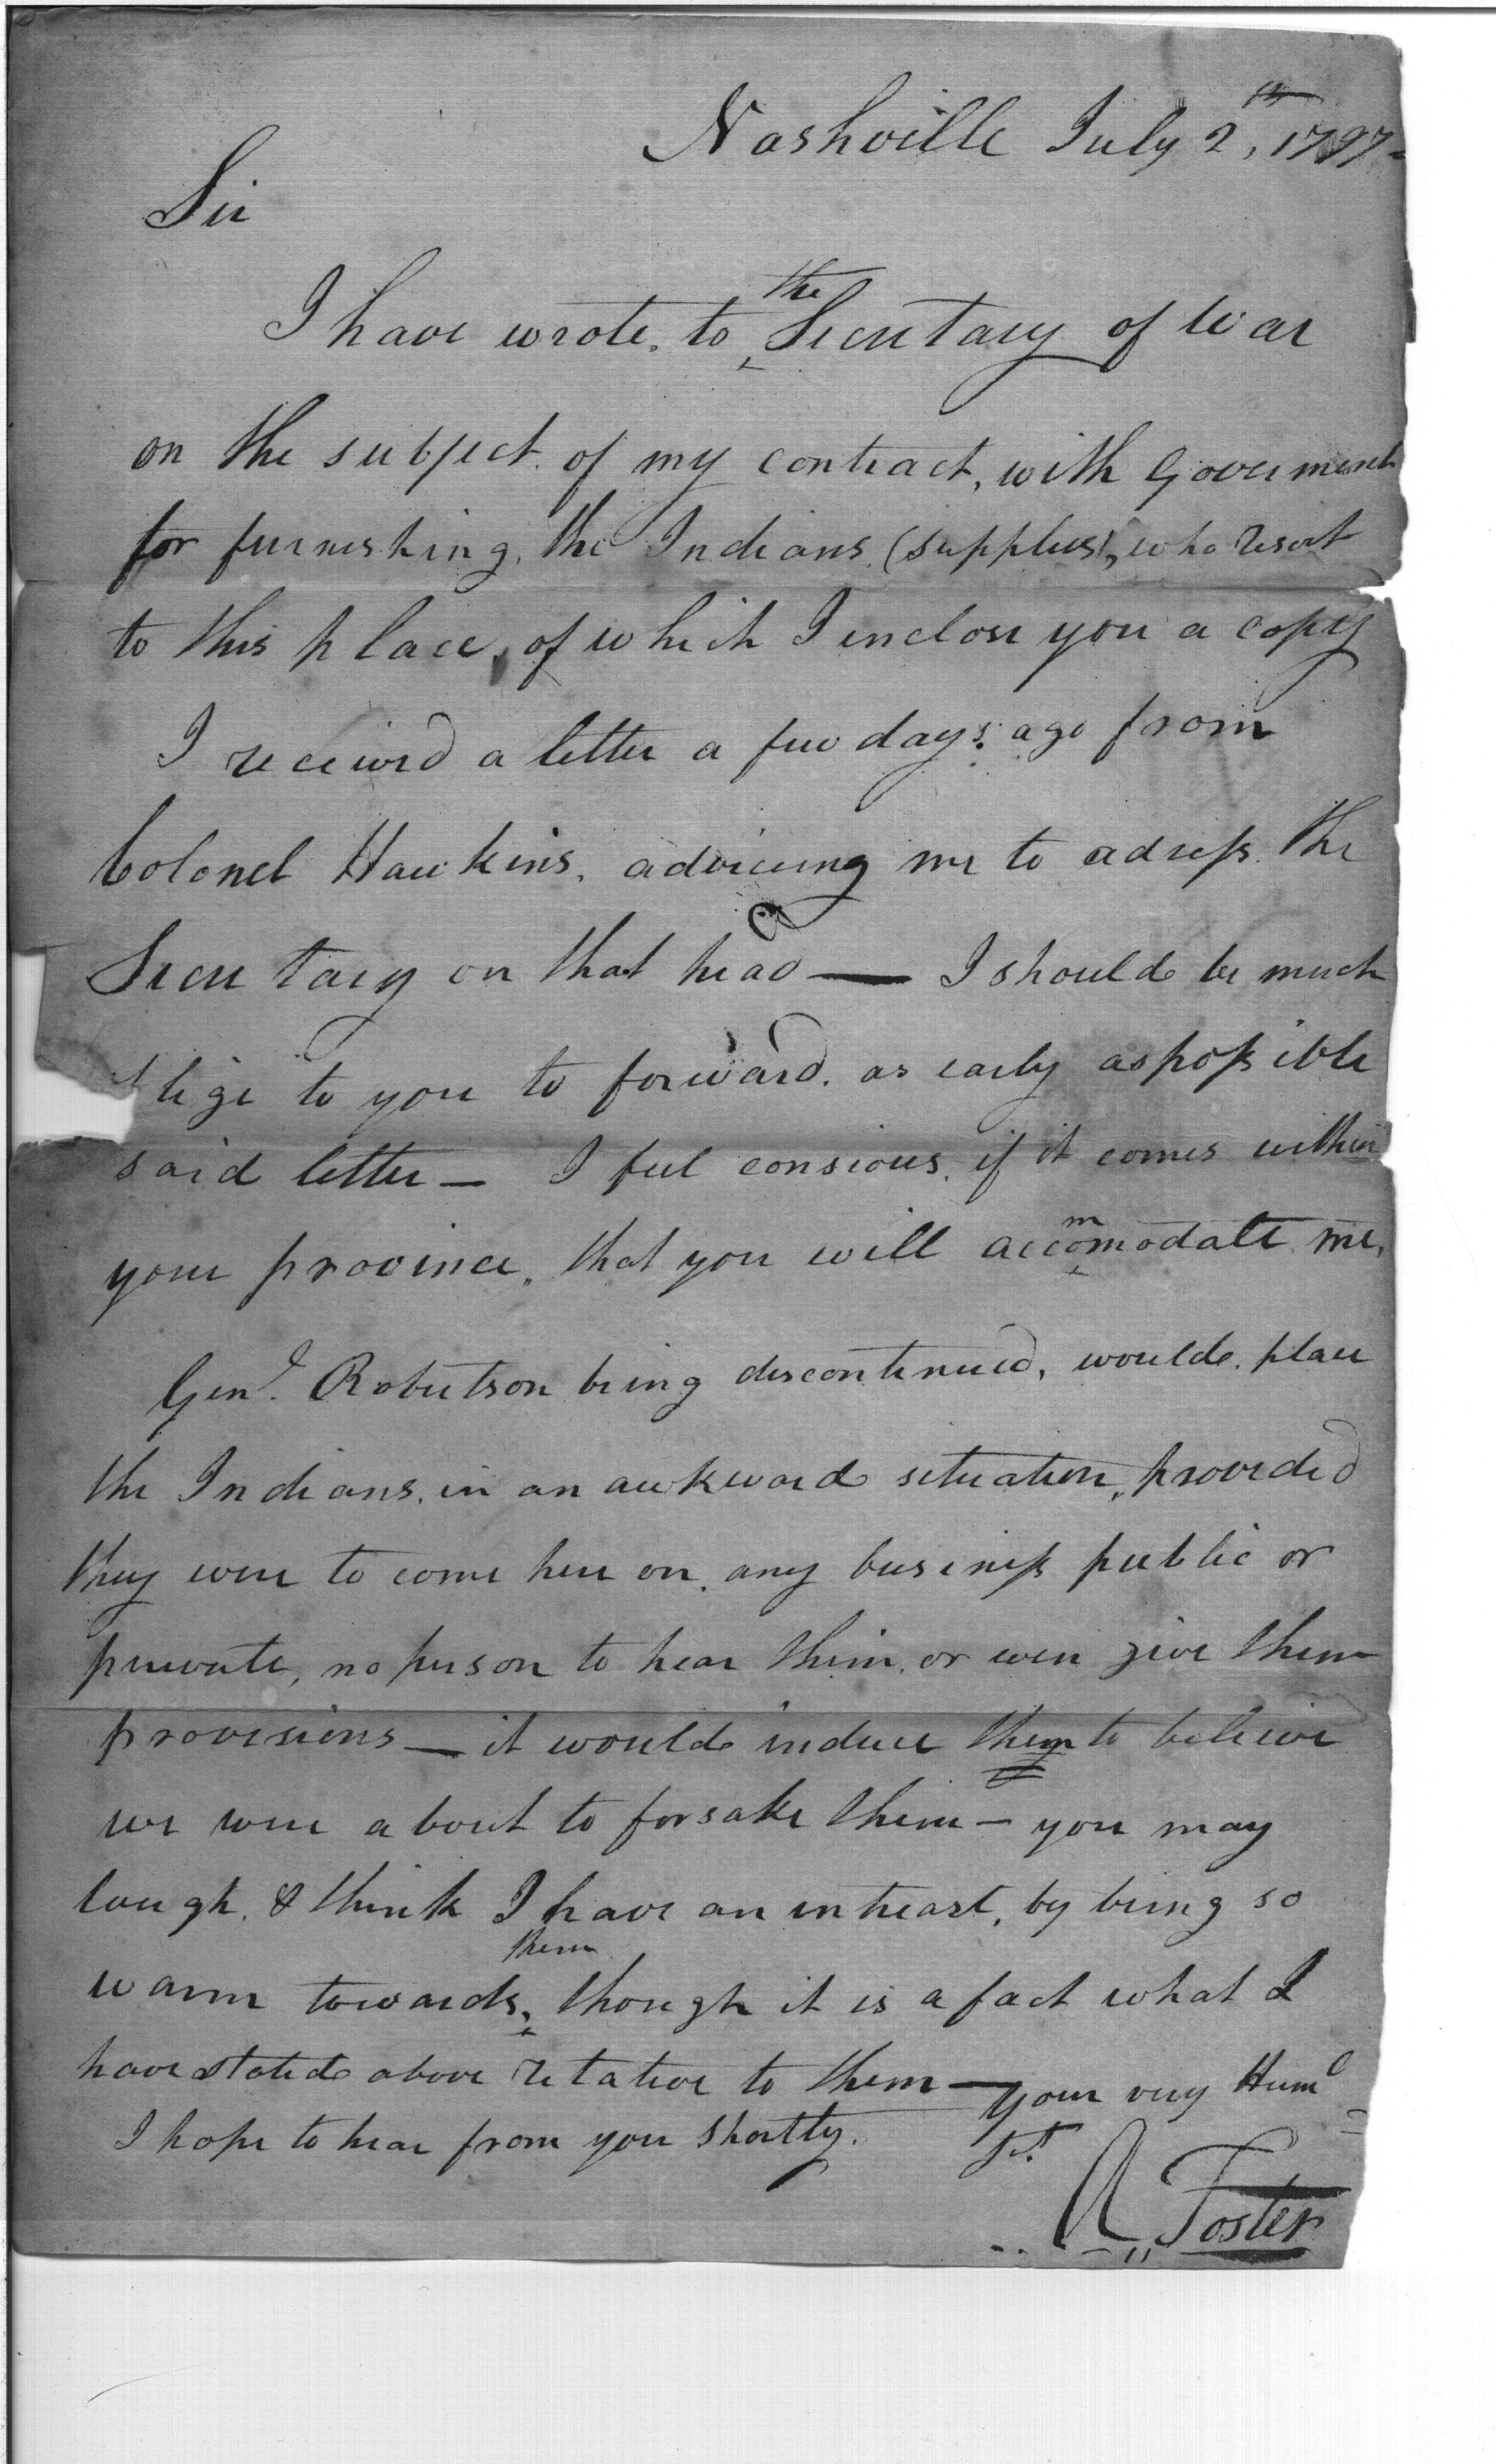 Nashville July 2th, 1797-
Sir
I have wrote. to the Secretary of War
on the subject. of my contract, with Goverment
for furnishing. the Indians. (supplies), who resort
to this place, of which I inclose you a copy
I received a letter a few days. ago from
Colonel Hawkins. adviceing me to adress. the
Secretary on that head — I should be much
lige to you to forward. as early as possible
said letter — I feel consious. if it comes within
your province. that you will accommodate me.
Genl. Robertson being discontinued, would. place
the Indians. in an awkward situation, provided
they were to come here on. any business public or
private, no person to hear them. or even give them
provisions — it would induce them to believe
we were about to forsake them — you may
laugh. & think I have an intreast, by being so
warm towards, them though it is a fact what I
have stated above retative to them —
I hope to hear from you shortly.
your very Huml
St.
A Foster